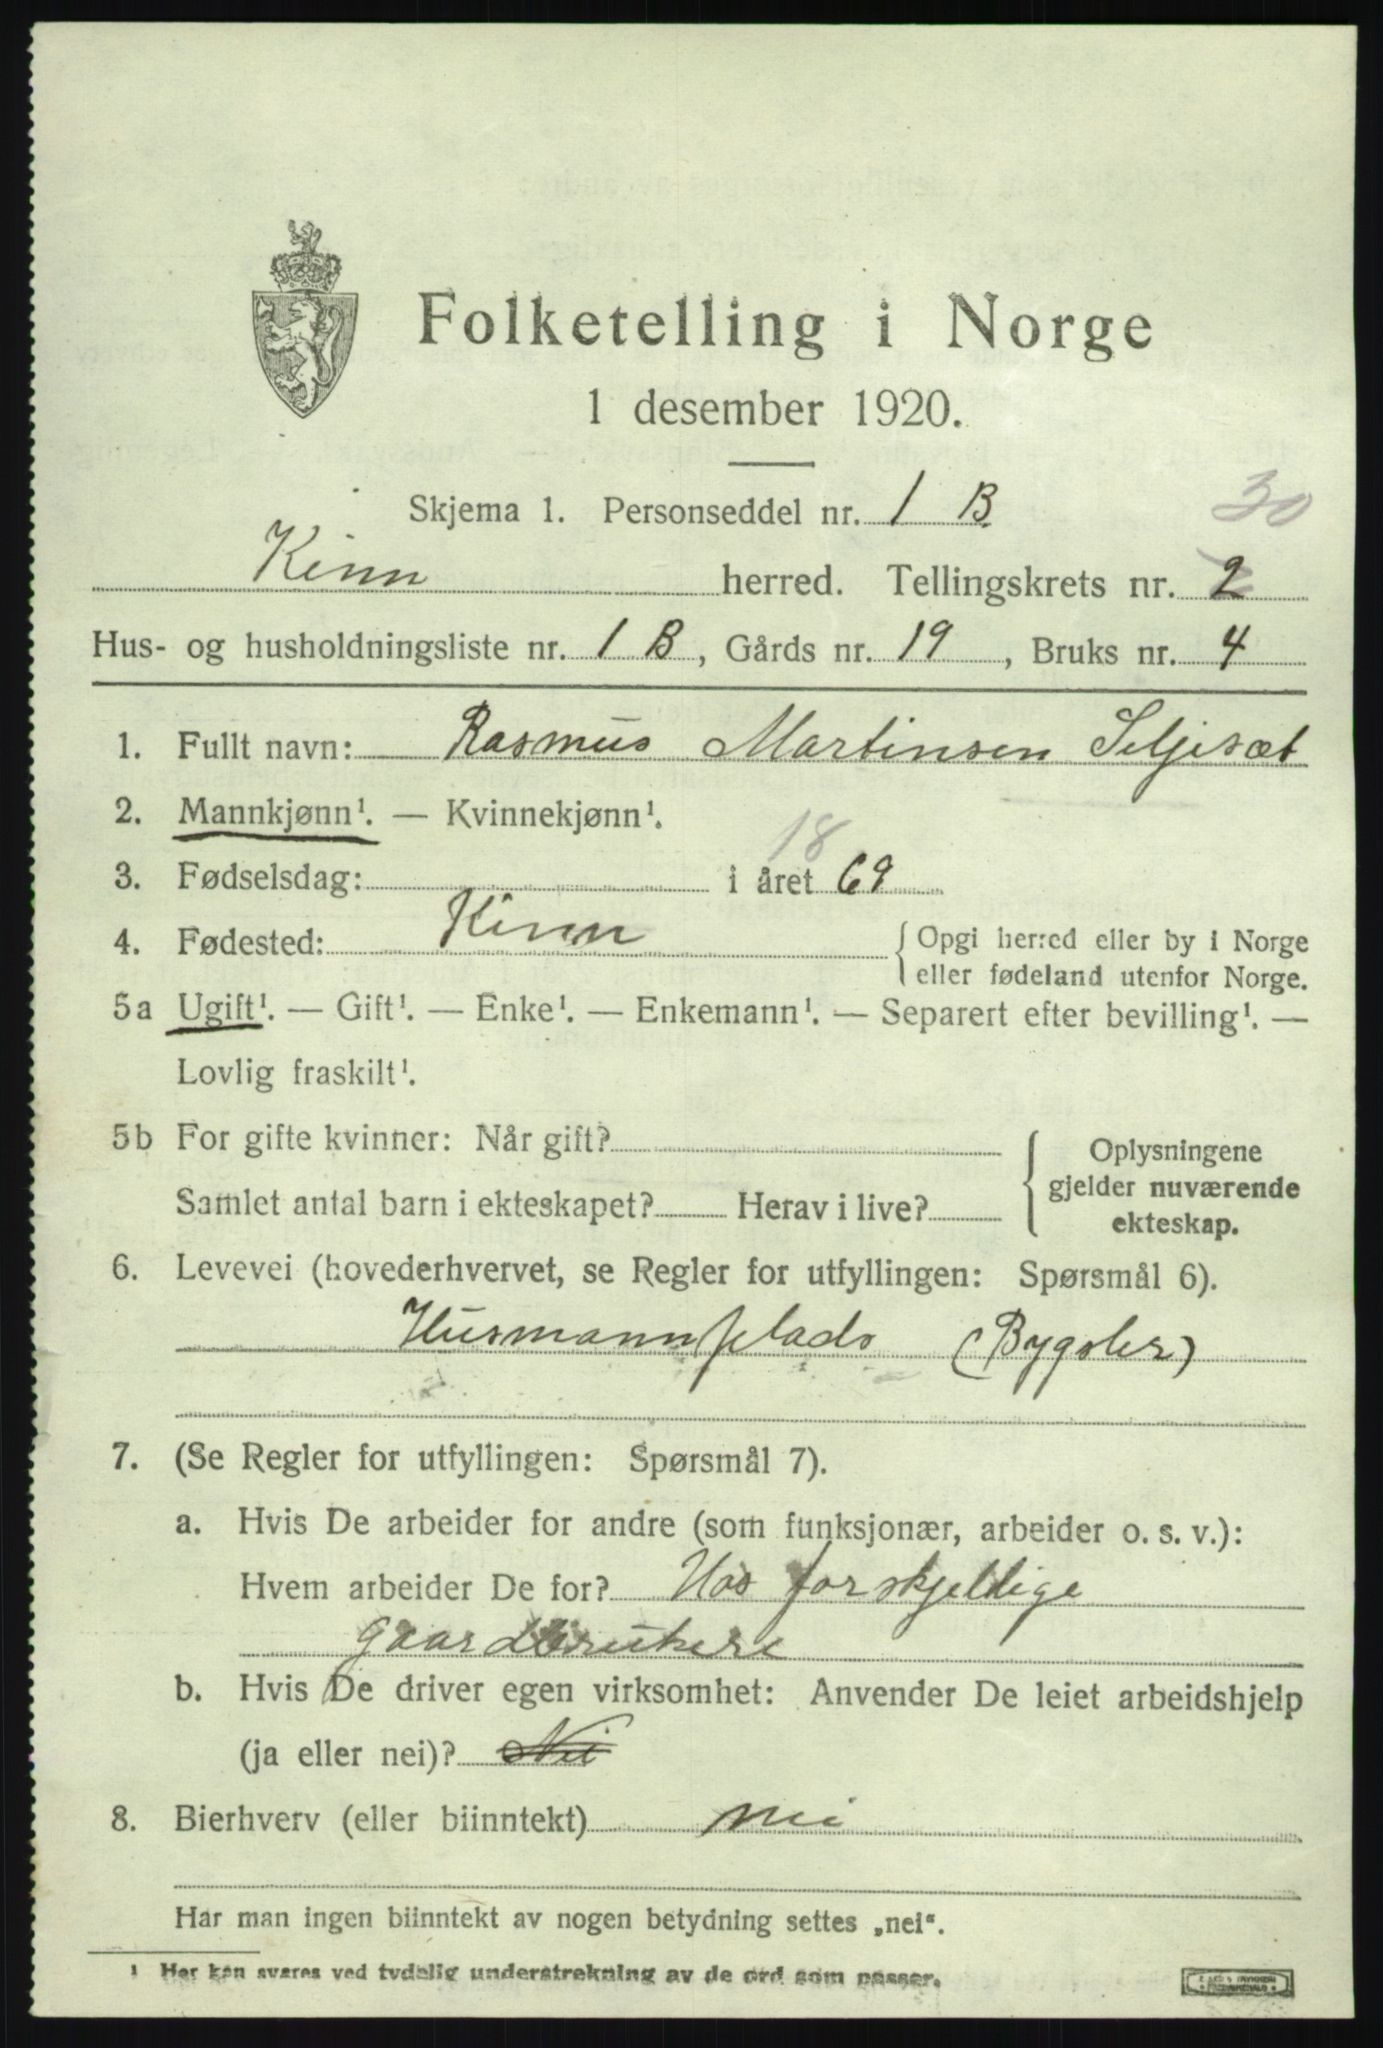 Folketelling i Norge
1 desember 1920.
Skjema 1. Personseddel nr. 1 B 30
Kinn herred. Tellingskrets nr. 2
Hus- og husholdningsliste nr. 1 B, Gårds nr. 19, Bruks nr. 4
1. Fullt navn: Rasmus Martinsen Seljesæt
2. Mannkjønn¹. — Kvinnekjønn¹.
3. Fødselsdag: i året 18 69
4. Fødested: Kinn {Opgi herred eller by i Norge
eller fødeland utenfor Norge.
5a Ugift¹. — Gift¹. — Enke¹. — Enkemann¹. — Separert efter bevilling¹. —
Lovlig fraskilt¹.
5b For gifte kvinner: Når gift? Oplysningene
gjelder nuværende
Samlet antal barn i ekteskapet? Herav i live? ekteskap.
6. Levevei (hovederhvervet, se Regler for utfyllingen: Spørsmål 6).
Husmannplads (Bygsler)
7. (Se Regler for utfyllingen: Spørsmål 7).
a. Hvis De arbeider for andre (som funksjonær, arbeider o. s. v.):
Hvem arbeider De for? Hos forskjellige
gaardbrukere
b. Hvis De driver egen virksomhet: Anvender De leiet arbeidshjelp
(ja eller nei)? Nei
8. Bierhverv (eller biinntekt) nei
Har man ingen biinntekt av nogen betydning settes „nei“.
¹ Her kan svares ved tydelig understrekning av de ord som passer.